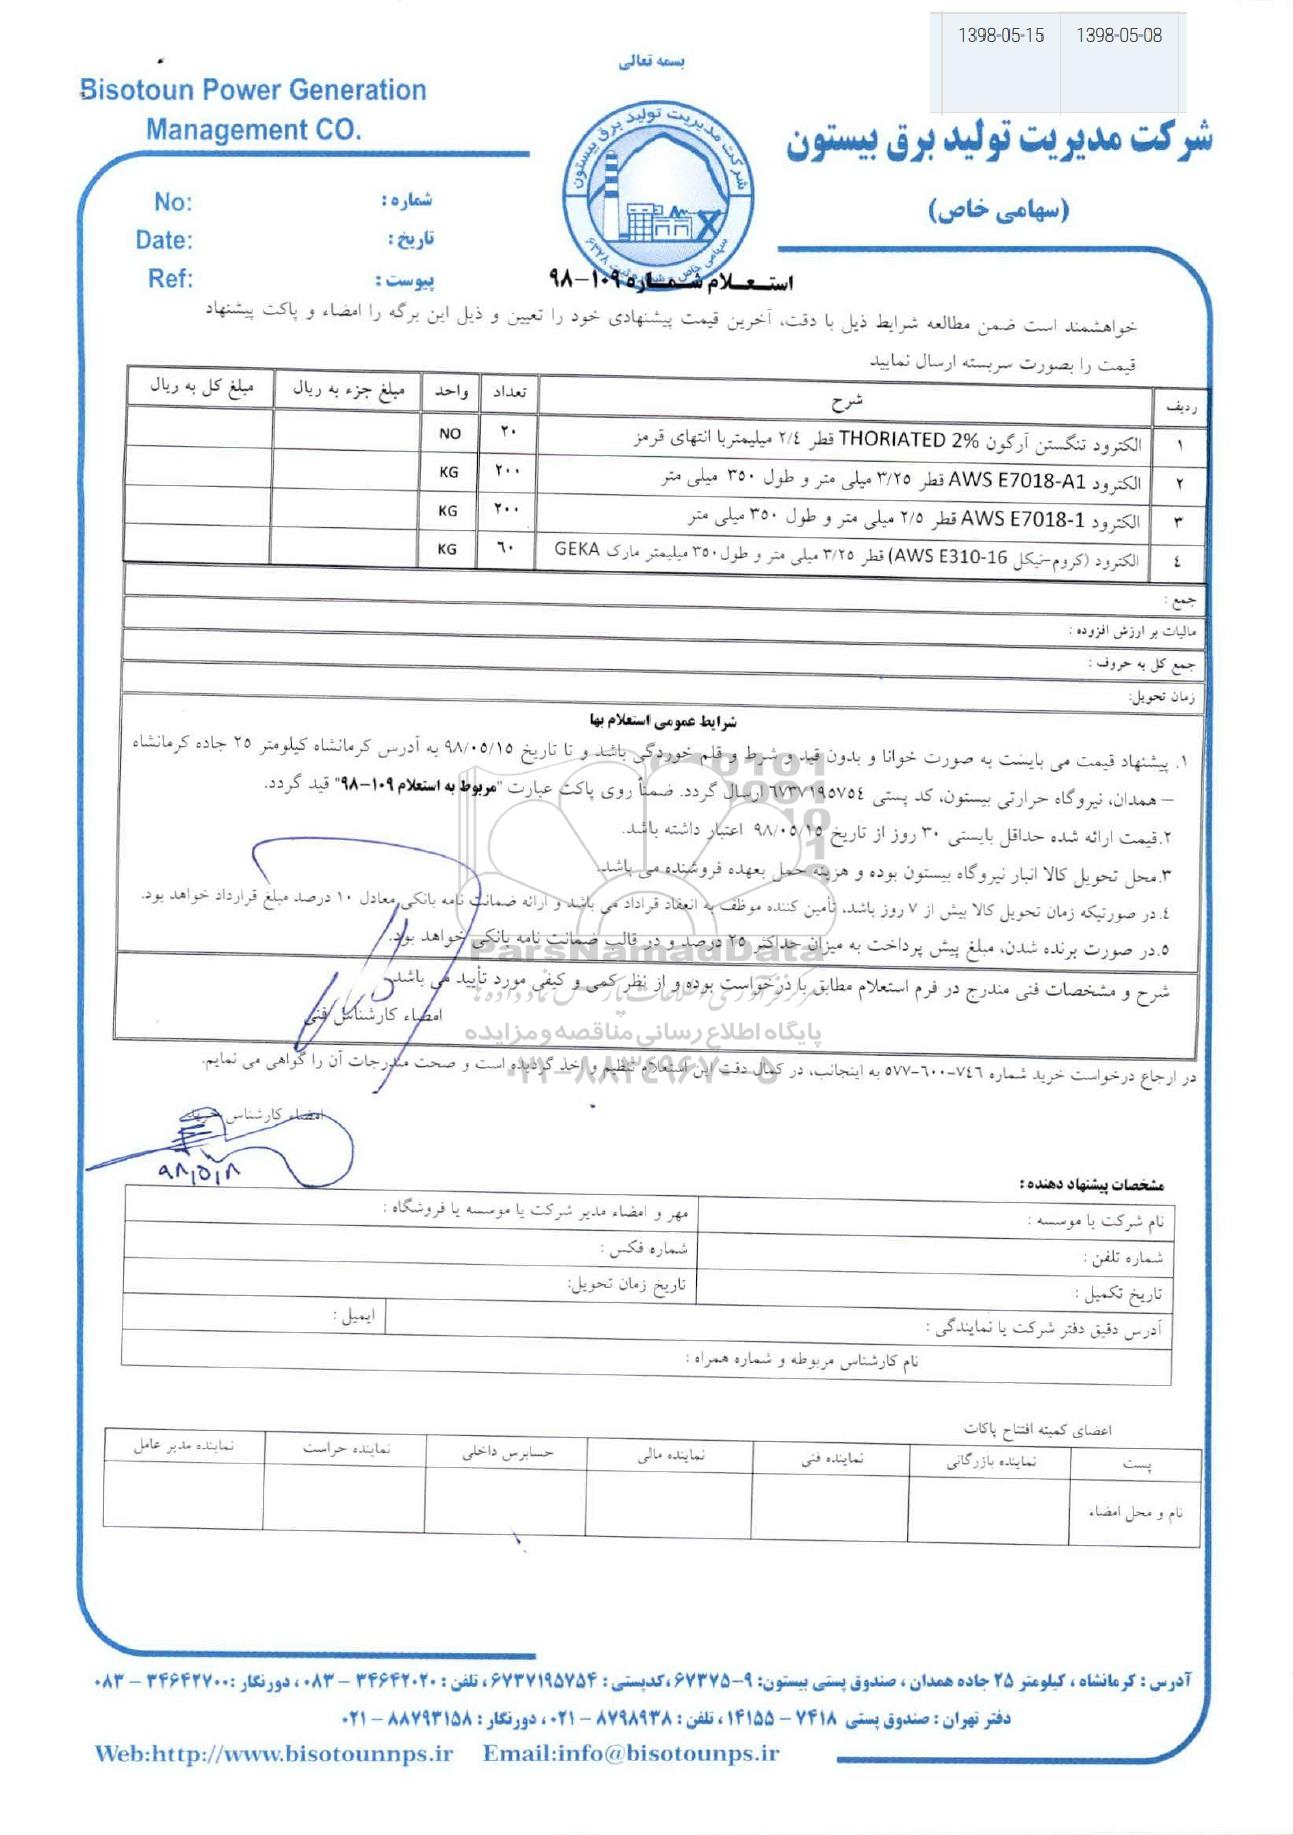 1398-05-15 1398-05-08
بسمه تعالی
Bisotoun Power Generation
Management CO.
شرکت مدیریت تولید برق بیستون
(سهامی خاص)
شرکت مدیریت تولید برق بیستون
سهامی خاص - شماره ثبت ۶۳۲۸
No: شماره :
Date: تاریخ :
Ref: پیوست :
استعلام شماره ۱۰۹-۹۸
خواهشمند است ضمن مطالعه شرایط ذیل با دقت، آخرین قیمت پیشنهادی خود را تعیین و ذیل این برگه را امضاء و پاکت پیشنهاد
قیمت را بصورت سربسته ارسال نمایید
ردیف شرح تعداد واحد مبلغ جزء به ریال مبلغ کل به ریال
۱ الکترود تنگستن آرگون THORIATED 2% قطر ۲/٤ میلیمتربا انتهای قرمز ۲۰ NO
۲ الکترود AWS E7018-A1 قطر ۳/۲۵ میلی متر و طول ۳۵۰ میلی متر ۲۰۰ KG
۳ الکترود AWS E7018-1 قطر ۲/۵ میلی متر و طول ۳۵۰ میلی متر ۲۰۰ KG
٤ الکترود (کروم-نیکل AWS E310-16) قطر ۳/۲۵ میلی متر و طول۳۵۰ میلیمتر مارک GEKA ٦۰ KG
جمع :
مالیات بر ارزش افزوده :
جمع کل به حروف :
زمان تحویل:
شرایط عمومی استعلام بها
۱. پیشنهاد قیمت می بایست به صورت خوانا و بدون قید و شرط و قلم خوردگی باشد و تا تاریخ ۹۸/۰۵/۱۵ به آدرس کرمانشاه کیلومتر ۲۵ جاده کرمانشاه
– همدان، نیروگاه حرارتی بیستون، کد پستی ٦۷۳۷۱۹۵۷۵٤ ارسال گردد. ضمناً روی پاکت عبارت "مربوط به استعلام ۱۰۹-۹۸" قید گردد.
۲.قیمت ارائه شده حداقل بایستی ۳۰ روز از تاریخ ۹۸/۰۵/۱۵ اعتبار داشته باشد.
۳.محل تحویل کالا انبار نیروگاه بیستون بوده و هزینه حمل بعهده فروشنده می باشد.
٤.در صورتیکه زمان تحویل کالا بیش از ۷ روز باشد، تأمین کننده موظف به انعقاد قراداد می باشد و ارائه ضمانت نامه بانکی معادل ۱۰ درصد مبلغ قرارداد خواهد بود.
۵.در صورت برنده شدن، مبلغ پیش پرداخت به میزان حداکثر ۲۵ درصد و در قالب ضمانت نامه بانکی خواهد بود.
ParsNamadData
شرح و مشخصات فنی مندرج در فرم استعلام مطابق با درخواست بوده و از نظر کمی و کیفی مورد تأیید می باشد.
امضاء کارشناس فنی
پایگاه اطلاع رسانی مناقصه و مزایده
۰۲۱-۸۸۳٤۹۶۷۰-۵
در ارجاع درخواست خرید شماره ۷٤٦-۶۰۰-۵۷۷ به اینجانب، در کمال دقت این استعلام تنظیم و اخذ گردیده است و صحت مندرجات آن را گواهی می نمایم.
امضاء کارشناس خرید
۹۸/۵/۸
مشخصات پیشنهاد دهنده :
نام شرکت یا موسسه : مهر و امضاء مدیر شرکت یا موسسه یا فروشگاه :
شماره تلفن : شماره فکس :
تاریخ تکمیل : تاریخ زمان تحویل:
آدرس دقیق دفتر شرکت یا نمایندگی : ایمیل :
نام کارشناس مربوطه و شماره همراه :
اعضای کمیته افتتاح پاکات
پست نماینده بازرگانی نماینده فنی نماینده مالی حسابرس داخلی نماینده حراست نماینده مدیر عامل
نام و محل امضاء
آدرس : کرمانشاه ، کیلومتر ۲۵ جاده همدان ، صندوق پستی بیستون: ۹-۶۷۳۷۵ ،کدپستی : ۶۷۳۷۱۹۵۷۵۴ ، تلفن : ۳۴۶۴۲۰۲۰ – ۰۸۳ ، دورنگار :۳۴۶۴۲۷۰۰ – ۰۸۳
دفتر تهران : صندوق پستی ۷۴۱۸ – ۱۴۱۵۵ ، تلفن : ۸۷۹۸۹۳۸ – ۰۲۱ ، دورنگار : ۸۸۷۹۳۱۵۸ – ۰۲۱
Web:http://www.bisotounnps.ir Email:info@bisotounps.ir